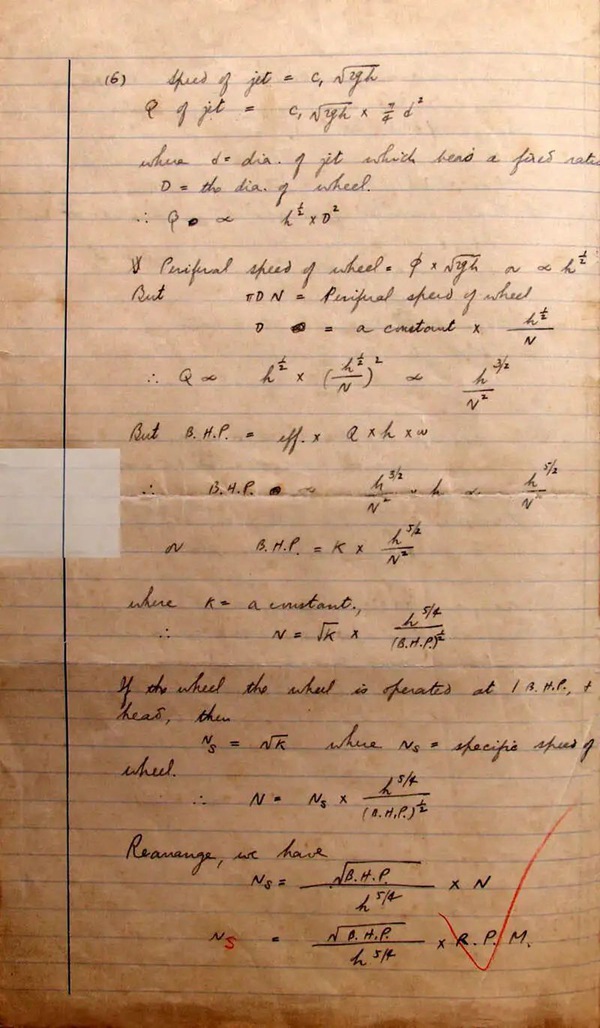 (6) Speed of jet = C₁ √2gh
Q of jet = C₁ √2gh × π/4 d²
where d = dia. of jet which bears a fixed ratio
D = the dia. of wheel.
∴ Q ∝ h^½ × D²
Periferal speed of wheel = φ × √2gh or ∝ h^½
But πDN = Periferal speed of wheel
D = a constant × h^½/N
∴ Q ∝ h^½ × (h^½/N)² ∝ h^3/2/N²
But B.H.P. = eff. × Q × h × w
∴ B.H.P. ∝ h^3/2/N² × h ∝ h^5/2/N²
or B.H.P. = K × h^5/2/N²
where K = a constant.,
∴ N = √K × h^5/4/(B.H.P.)^½
If the wheel the wheel is operated at 1 B.H.P., +
head, then
N_S = √K where N_S = specific speed of
wheel.
∴ N = N_S × h^5/4/(B.H.P.)^½
Rearrange, we have
N_S = √B.H.P./h^5/4 × N
N_S = √B.H.P./h^5/4 × R.P.M.